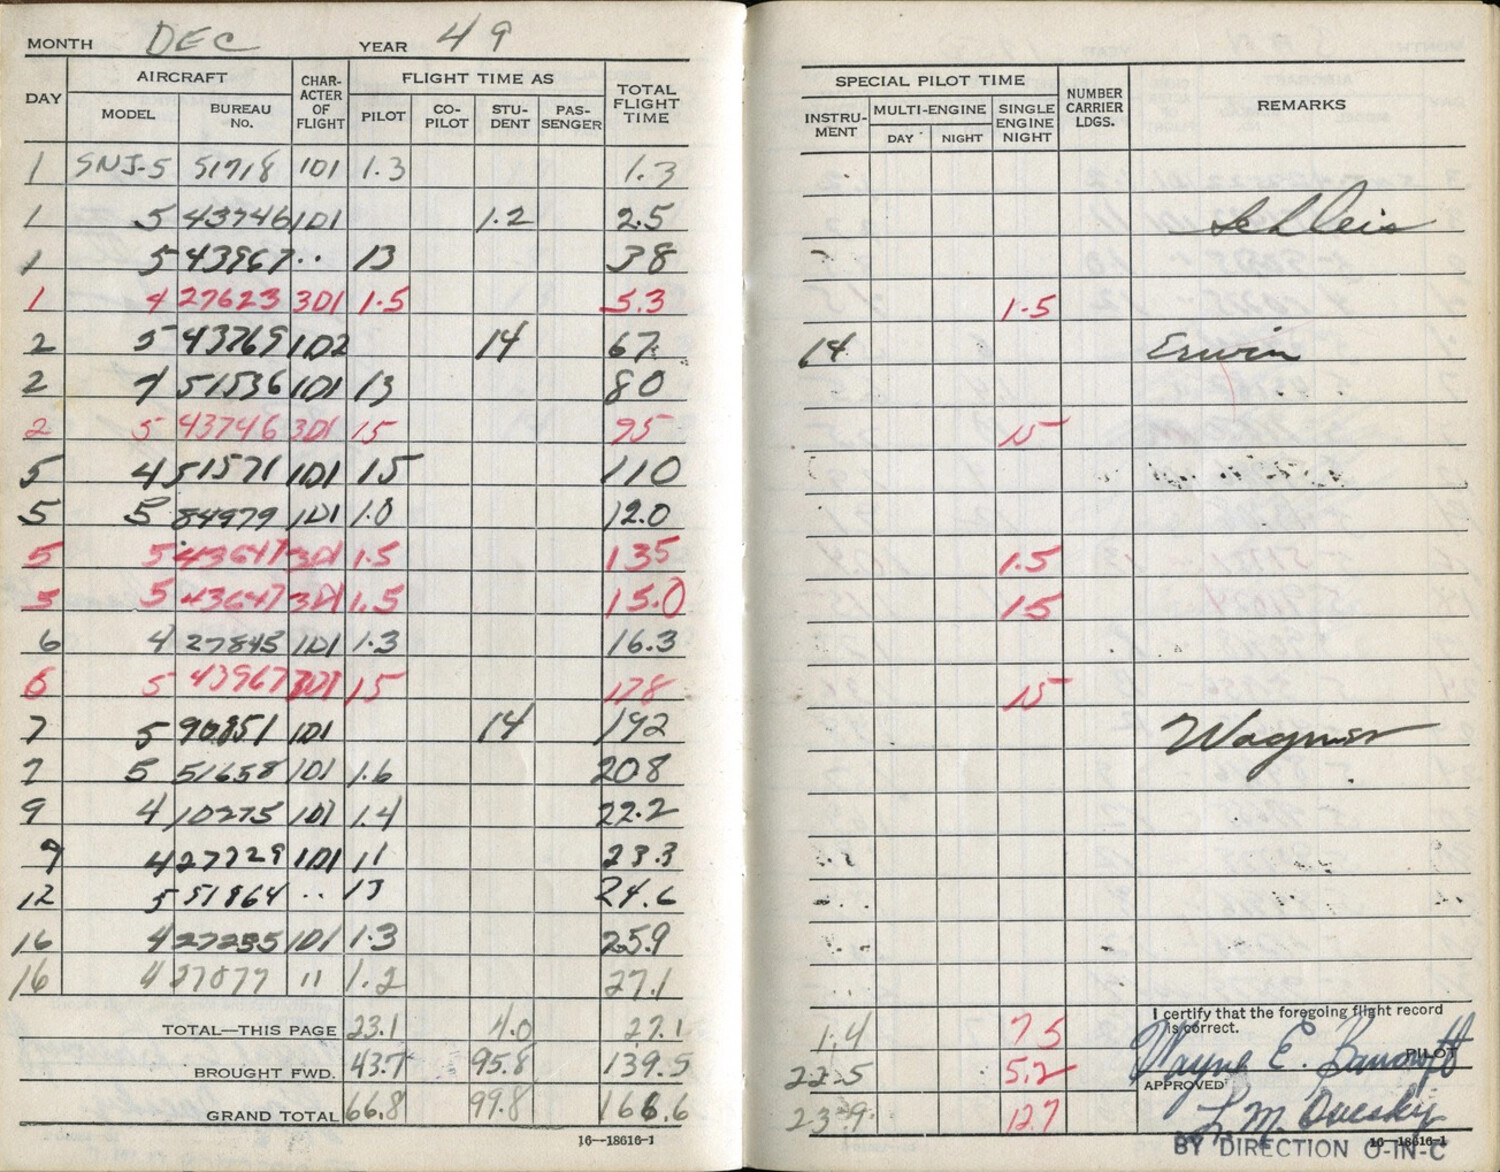 MONTH DEC YEAR 49
DAY AIRCRAFT MODEL BUREAU NO. CHAR-ACTER OF FLIGHT FLIGHT TIME AS PILOT CO-PILOT STU-DENT PAS-SENGER TOTAL FLIGHT TIME
1 SNJ-5 51718 1D1 1.3 1.3
1 5 43746 1D1 1.2 2.5
1 5 43967 .. 13 38
1 4 27623 3D1 1.5 5.3
2 5 43769 1D2 14 67
2 4 51536 1D1 13 80
2 5 43746 3D1 15 95
5 4 51571 1D1 15 110
5 5 84979 1D1 1.0 12.0
5 5 43647 3D1 1.5 135
5 5 43647 3D1 1.5 15.0
6 4 27845 1D1 1.3 16.3
6 5 43967 3D1 15 178
7 5 90851 1D1 14 192
7 5 51658 1D1 1.6 208
9 4 10275 1D1 1.4 22.2
9 4 27729 1D1 11 23.3
12 5 51864 .. 13 24.6
16 4 27255 1D1 1.3 25.9
16 4 27077 11 1.2 27.1
TOTAL—THIS PAGE 23.1 4.0 27.1
BROUGHT FWD. 43.7 95.8 139.5
GRAND TOTAL 66.8 99.8 166.6
16—18616-1
SPECIAL PILOT TIME INSTRU-MENT MULTI-ENGINE DAY NIGHT SINGLE ENGINE NIGHT NUMBER CARRIER LDGS. REMARKS
Schleis
1.5
14 Erwin
15
1.5
15
15
Wagner
I certify that the foregoing flight record
is correct.
1.4 75 Wayne E. Bancroft PILOT
22.5 5.2 APPROVED
23.9 12.7 L. M.
16—18616-1
BY DIRECTION O-IN-C